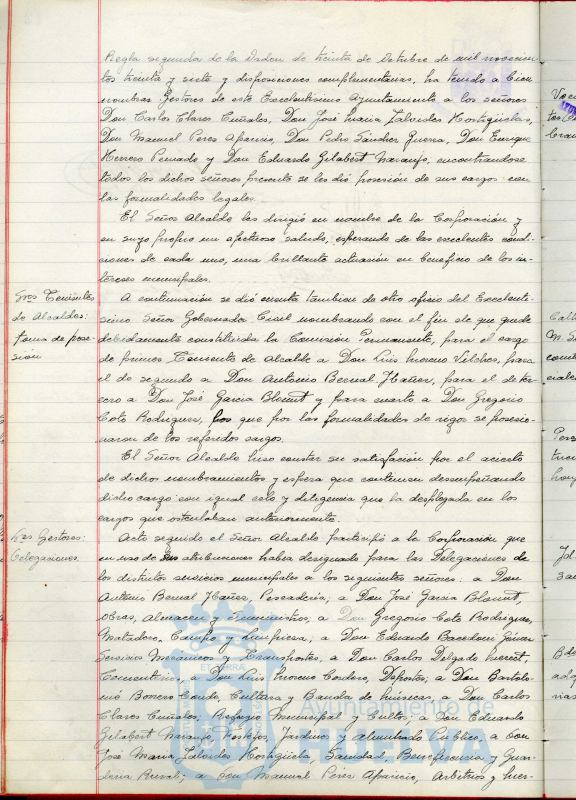 Regla segunda de la Orden de treinta de Octubre de mil novecien-
tos treinta y siete y disposiciones complementarias, ha tenido a bien
nombrar Gestores de este Excelentisimo Ayuntamiento a los señores
Don Carlos Clares Cuñales, Don José Maria Zalvides Hostigüelas,
Don Manuel Peres Aparicio, Don Pedro Sánchez Guerra, Don Enrique
Herrero Penado y Don Eduardo Gelabert Naranjo, encontrandose
todos los dichos señores presente se les dió posesión de sus cargos con
las formalidades legales.
El Señor Alcalde les dirigió en nombre de la Corporación y
en suyo propio un afectuoso saludo, esperando de las excelentes condi-
ciones de cada uno, una brillante actuación en beneficio de los in-
tereses municipales.
Sres Tenientes
de Alcaldes:
toma de pose-
sion
A continuación se dió cuenta tambien de otro oficio del Excelenti-
simo Señor Gobernador Civil nombrando con el fin de que quede
debidamente constituida la Comisión Permanente, para el cargo
de primer Teniente de Alcalde a Don Luis Moreno Vilches, para
el de segundo a Don Antonio Bernal Ybañez, para el de ter-
cero a Don José Garcia Blomut y para cuarto a Don Gregorio
Coto Rodriguez, los que por las formalidades de rigor se posesio-
naron de los referidos cargos.
El Señor Alcalde hizo constar su satisfacción por el acierto
de dichos nombramientos y espera que continuen desempeñando
dicho cargo con igual celo y diligencia que ha desplegado en los
cargos que ostentaban anteriormente.
Sres Gestores:
Delegaciones.
Acto seguido el Señor Alcalde participó a la Corporación que
en uso de sus atribuciones habia designado para las Delegaciones de
los distintos servicios municipales a los siguientes señores: a Don
Antonio Bernal Ybañez, Pescaderia; a Don José Garcia Blomut,
Obras, Almacen y Suministros; a Don Gregorio Coto Rodriguez,
Matadero, Campo y Limpieza; a Don Eduardo
Servicios Mecanicos y Transportes, a Don Carlos Delgado
Cementerios, a Don Luis Moreno Cordero, Deportes; a Don Bartolo-
mé Borrero Conde, Cultura y Banda de musica, a Don Carlos
Clares Cuñales, Refugio Municipal y Cultos; a Don Eduardo
Gelabert Naranjo, Festejos, Jardines y Alumbrado Publico, a Don
José Maria Zalvides Hostigüela, Sanidad, Beneficencia y Guar-
deria Rural; a Don Manuel Peres Aparicio, Arbitrios y Mer-
Ayuntamiento de
HUELVA